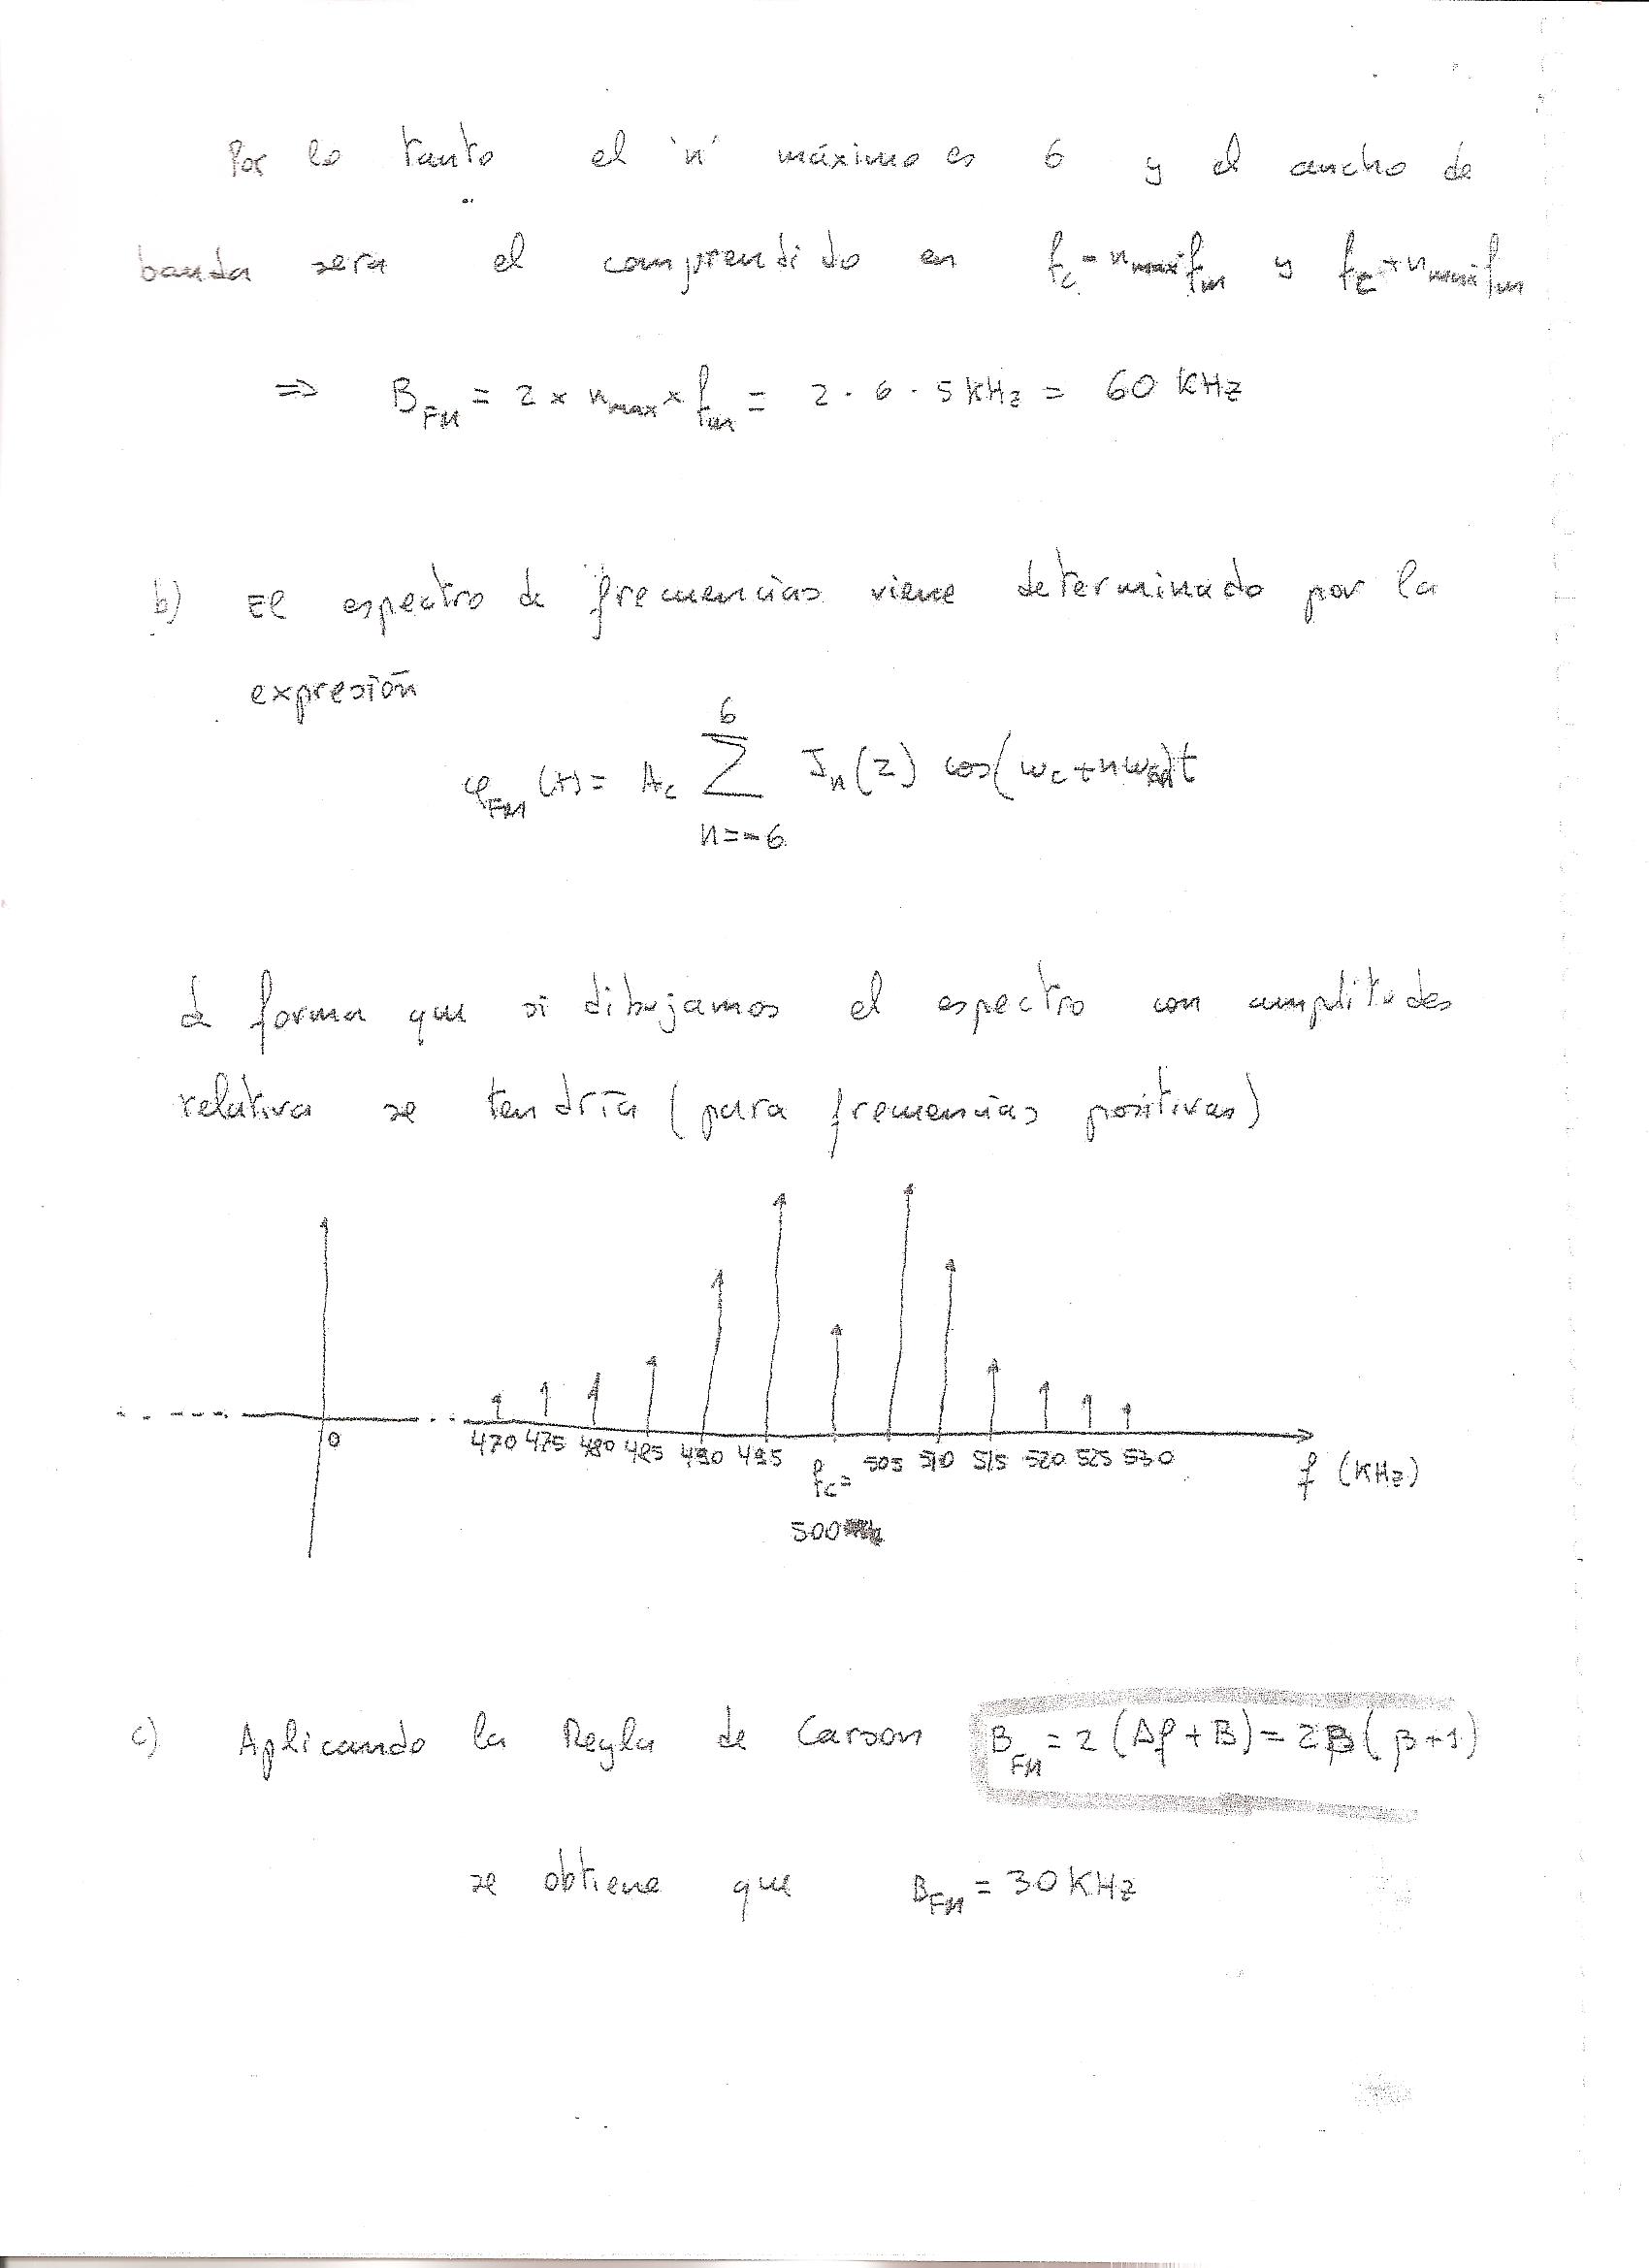 Por lo tanto el 'n' máximo es 6 y el ancho de
banda sera el comprendido en fc - nmax·fm y fc + nmax·fm
⇒ B_FM = 2 × nmax × fm = 2 · 6 · 5 KHz = 60 KHz
b) El espectro de frecuencias viene determinado por la
expresión
φ_FM (t) = Ac ∑_{n=-6}^{6} Jn(2) cos(ωc + nωm)t
de forma que si dibujamos el espectro con amplitudes
relativa se tendría (para frecuencias positivas)
0 470 475 480 485 490 495 fc = 505 510 515 520 525 530 f (KHz)
500
c) Aplicando la Regla de Carson B_FM = 2 (Δf + B) = 2B (β+1)
se obtiene que B_FM = 30 KHz